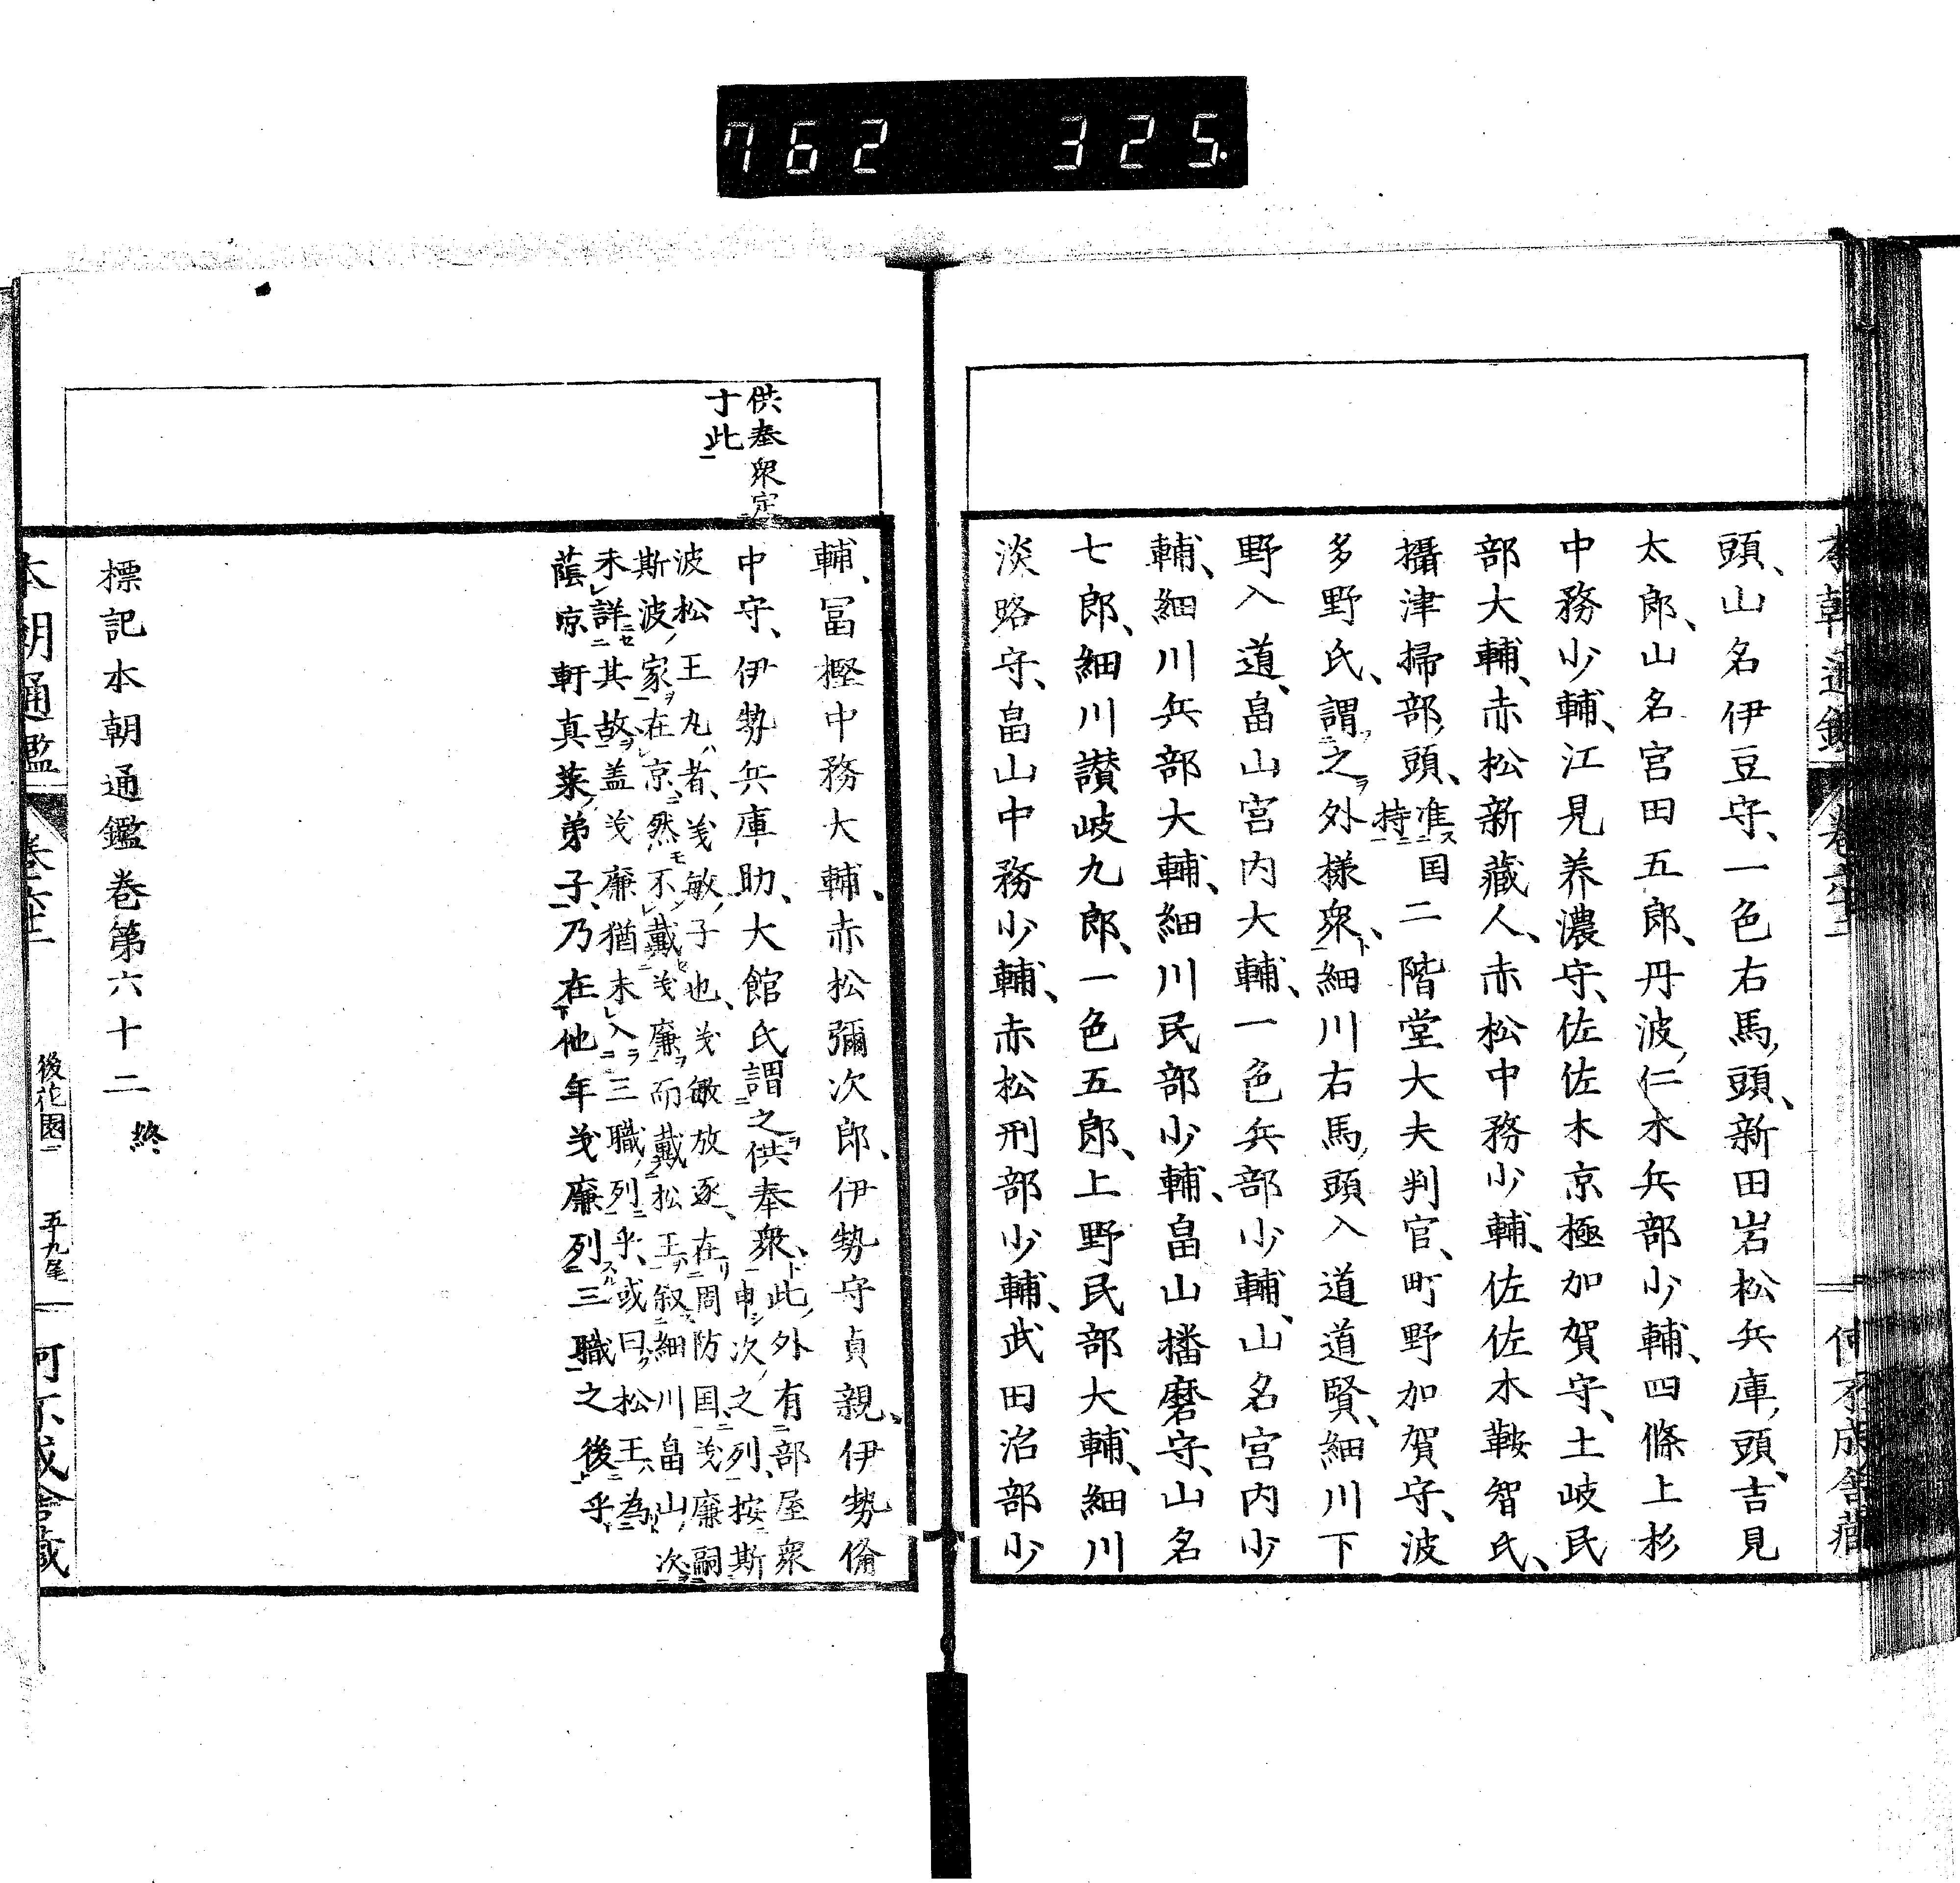 762 325.
本朝通鑑 卷六十二 何不成舍藏
頭、山名伊豆守、一色右馬頭、新田岩松兵庫頭、吉見
太郎、山名宮田五郎、丹波仁木兵部少輔、四條上杉
中務少輔、江見养濃守、佐佐木京極加賀守、土岐民
部大輔、赤松新藏人、赤松中務少輔、佐佐木鞍智氏、
攝津掃部頭、准国持二階堂大夫判官、町野加賀守、波
多野氏、謂之外樣衆、細川右馬頭入道道賢、細川下
野入道、畠山宮内大輔、一色兵部少輔、山名宮内少
輔、細川兵部大輔、細川民部少輔、畠山播磨守、山名
七郎、細川讃岐九郎、一色五郎、上野民部大輔、細川
淡路守、畠山中務少輔、赤松刑部少輔、武田治部少
供奉衆定
于此
輔、冨樫中務大輔、赤松彌次郎、伊勢守貞親、伊勢備
中守、伊勢兵庫助、大館氏謂之供奉衆、此外有部屋衆
申次之列、按斯
波松王丸者、义敏子也、义敏放逐、在周防国、义廉嗣
斯波家在京、然不戴义廉而戴松王叙細川畠山次
未詳其故、盖义廉猶未入三職列乎、或曰松王為
蔭凉軒真蘂弟子、乃在他年义廉列三職之後乎
標記本朝通鑑卷第六十二終
本朝通鑑 卷六十二 後花園 五九尾 何不成舍藏